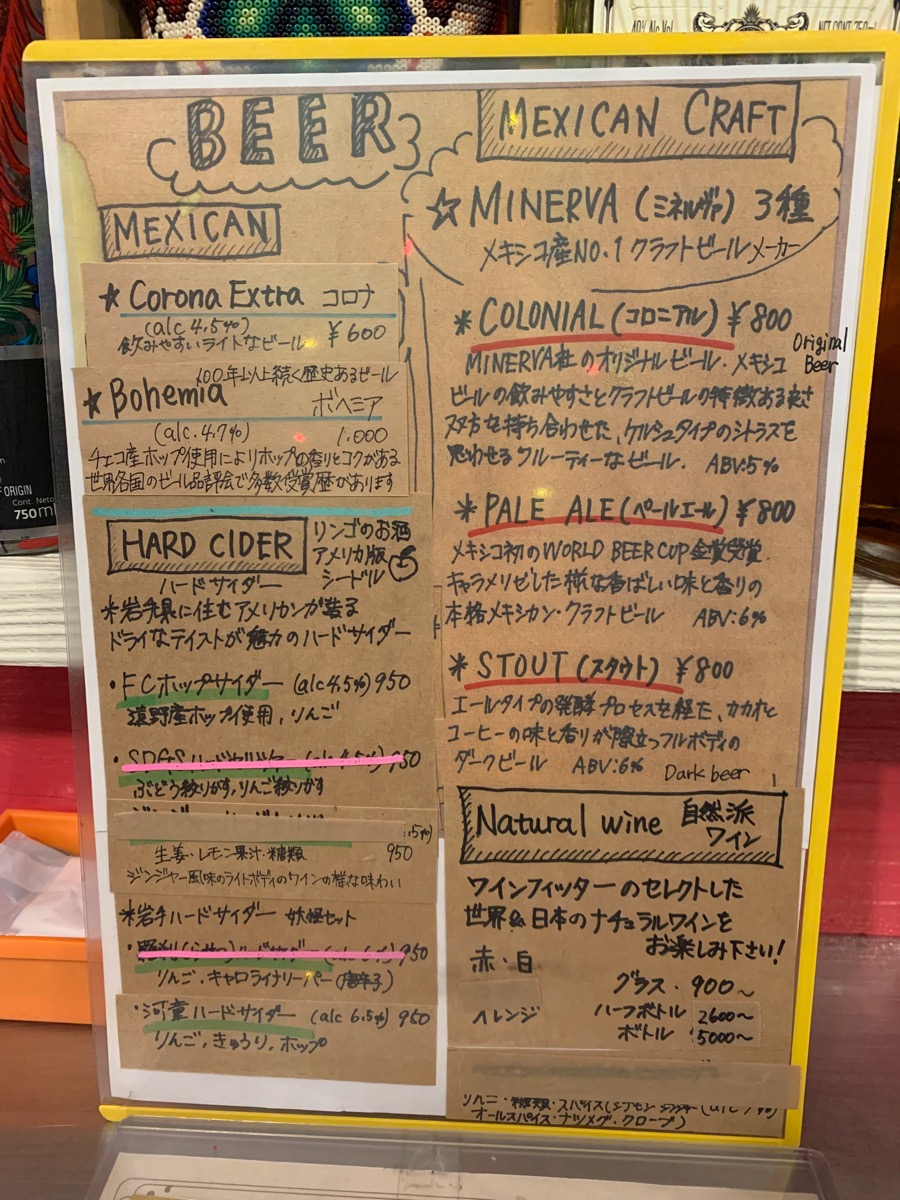 40% Alc. Vol.
NET CONT. 750mL
BEER
MEXICAN
★ Corona Extra コロナ
(alc 4.5%)
飲みやすいライトなビール ¥600
100年以上続く歴史あるビール
★ Bohemia ボヘミア
(alc. 4.7%) 1.000
チェコ産ホップ使用によりホップの香りとコクがある
世界各国のビール品評会で多数受賞歴があります
HARD CIDER
リンゴのお酒
アメリカ版
シードル
ハードサイダー
*岩手県に住むアメリカンが造る
ドライなテイストが魅力のハードサイダー
・FCホップサイダー (alc4.5%) 950
遠野産ホップ使用, りんご
950
ぶどう絞りかす, りんご絞りかす
.5%)
生姜・レモン果汁・糖類 950
ジンジャー風味のライトボディのワインの様な味わい
*岩手ハードサイダー 妖怪セット
950
りんご, キャロライナリーパー(唐辛子)
・河童ハードサイダー (alc 6.5%) 950
りんご, きゅうり, ホップ
MEXICAN CRAFT
☆ MINERVA (ミネルヴァ) 3種
メキシコ産NO.1クラフトビールメーカー
* COLONIAL (コロニアル) ¥800
Original
Beer
MINERVA社のオリジナルビール. メキシコ
ビールの飲みやすさとクラフトビールの特徴ある良さ
双方を持ち合わせた, ケルシュタイプのシトラスを
思わせるフルーティーなビール. ABV:5%
* PALE ALE (ペールエール) ¥800
メキシコ初のWORLD BEER CUP 金賞受賞.
キャラメリゼした様な香ばしい味と香りの
本格メキシカン・クラフトビール ABV:6%
* STOUT (スタウト) ¥800
エールタイプの発酵プロセスを経た, カカオと
コーヒーの味と香りが際立つフルボディの
ダークビール ABV:6% Dark beer
Natural wine 自然派
ワイン
ワインフィッターのセレクトした
世界&日本のナチュラルワインを
お楽しみ下さい!
赤・白
グラス・900〜
オレンジ
ハーフボトル 2600〜
ボトル 5000〜
りんご・糖類・スパイス
オールスパイス・ナツメグ・クローブ)
ORIGIN
Cont. Neto
750ml